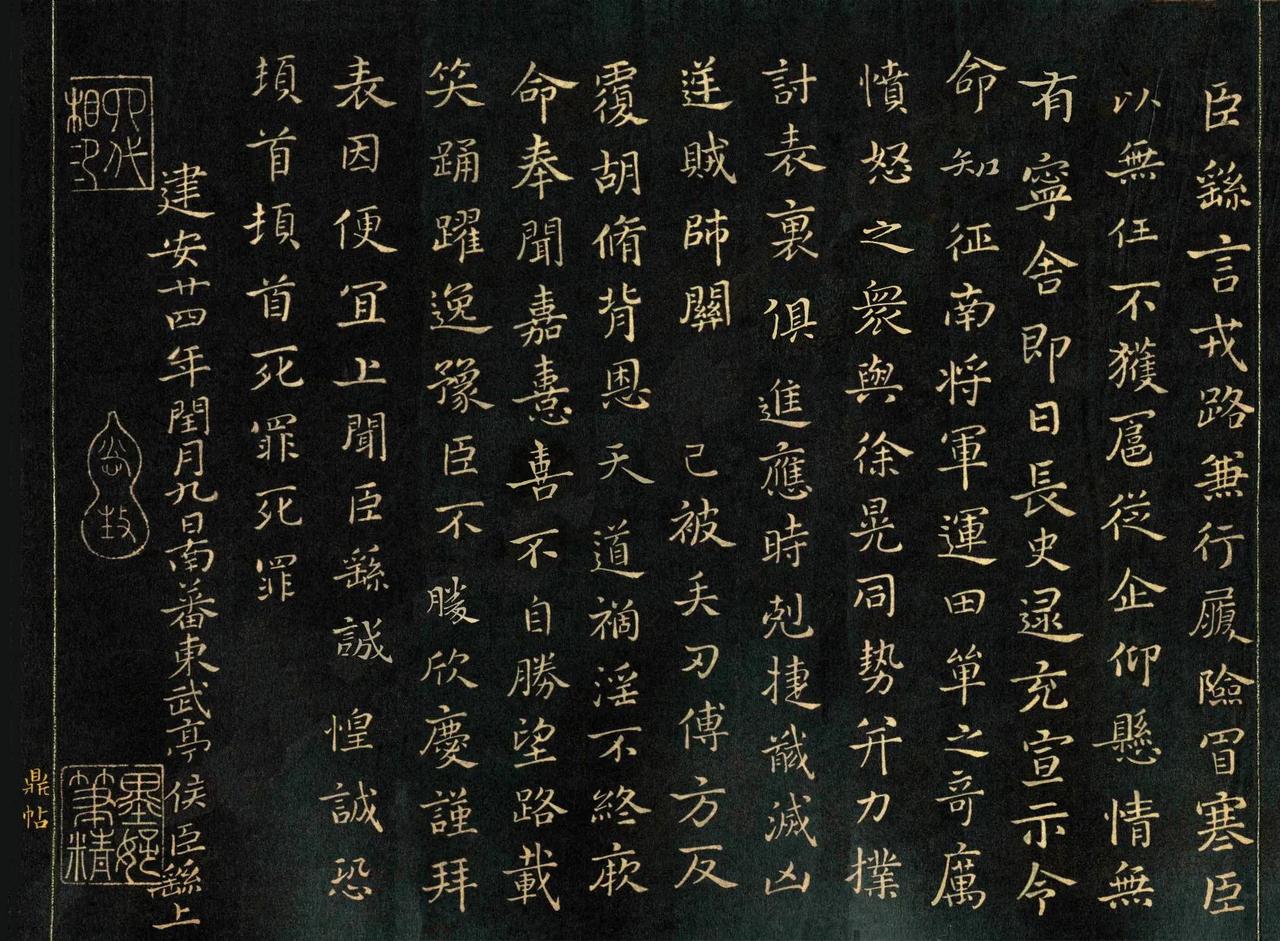 臣繇言戎路兼行履險冒寒臣
以無任不獲扈從企仰懸情無
有寧舍即日長史逯充宣示令
命知征南将軍運田單之奇厲
憤怒之衆與徐晃同勢并力撲
討表裏俱進應時剋捷馘滅凶
逆賊帥關 已被矢刃傅方反
覆胡脩背恩天道禍淫不終厥
命奉聞嘉憙喜不自勝望路載
笑踊躍逸豫臣不勝欣慶謹拜
表因便宜上聞臣繇誠惶誠恐
頓首頓首死罪死罪
建安廿四年閏月九日南蕃東武亭侯臣繇上
墨妙
筆精
鼎帖